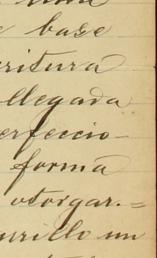 base
critura
llegada
erfeccio-
forma
otorgar.=
urrillo un